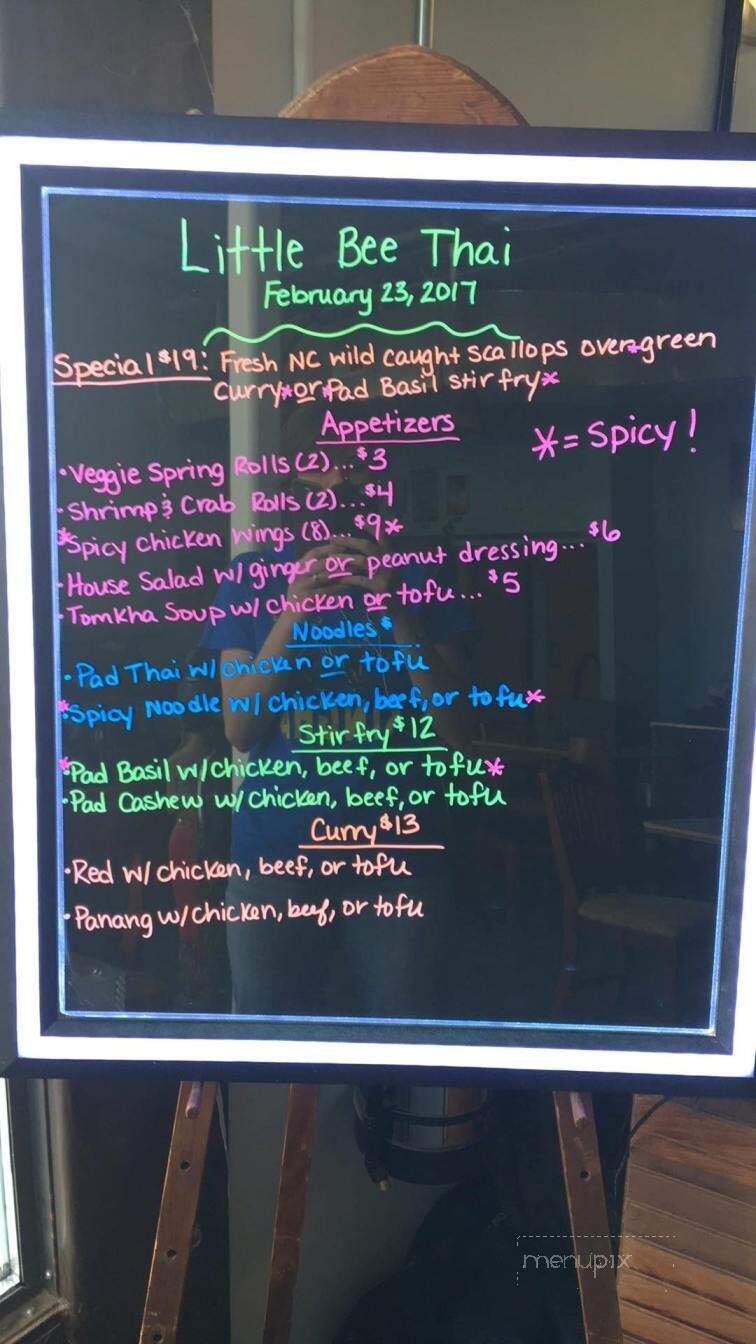 Little Bee Thai
February 23, 2017
Special $19: Fresh NC wild caught scallops over *green
curry* or *Pad Basil stir fry*
Appetizers
* = Spicy!
• Veggie Spring Rolls (2)... $3
• Shrimp & Crab Rolls (2)... $4
* Spicy Chicken Wings (8)... $9 *
• House Salad w/ ginger or peanut dressing... $6
• Tomkha Soup w/ chicken or tofu... $5
Noodles $
• Pad Thai w/ chicken or tofu
* Spicy Noodle w/ chicken, beef, or tofu *
Stir fry $12
* Pad Basil w/ chicken, beef, or tofu *
• Pad Cashew w/ chicken, beef, or tofu
Curry $13
• Red w/ chicken, beef, or tofu
• Panang w/ chicken, beef, or tofu
menupix